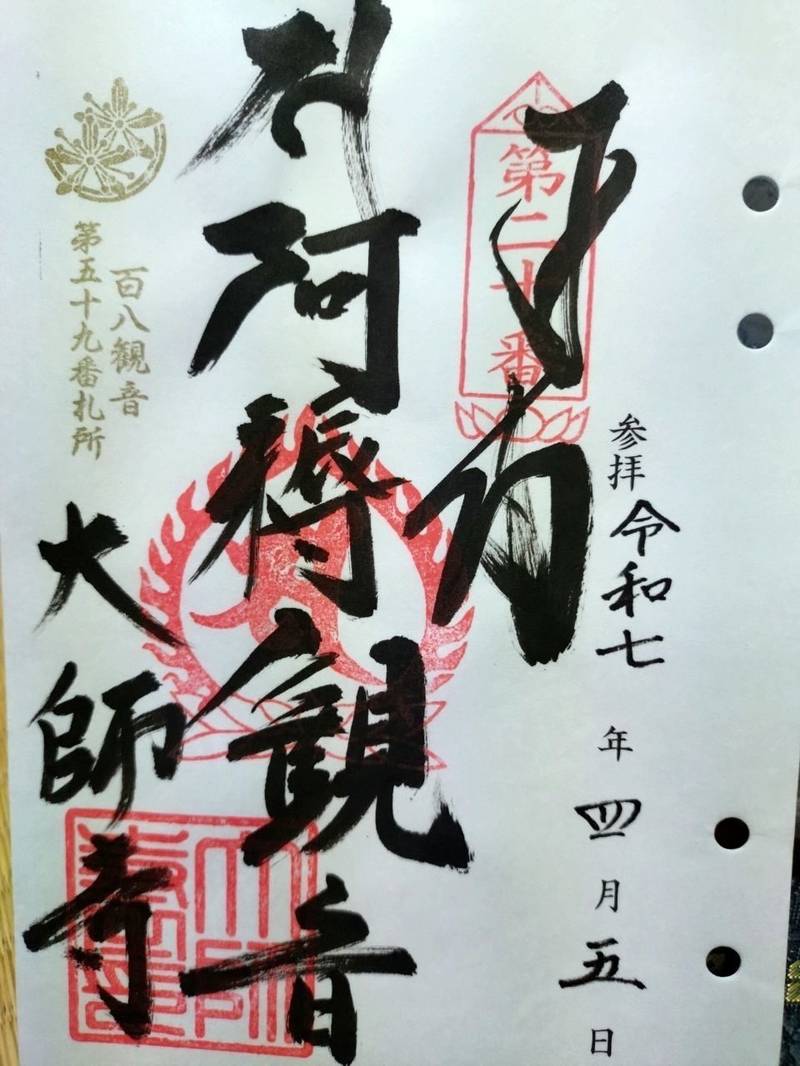 参拝 令和七年四月五日
第二十番
阿耨観音
百八観音
第五十九番札所
大師寺